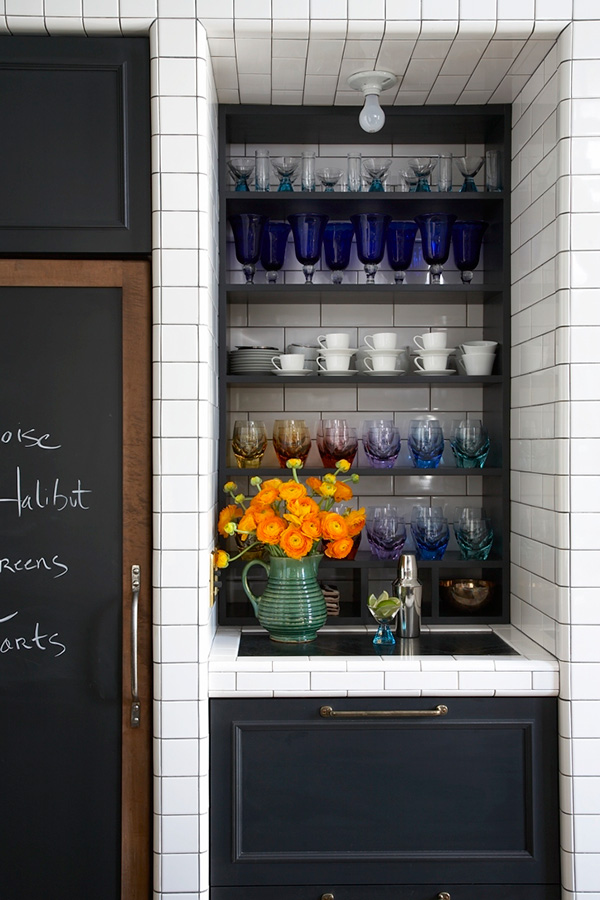 oise
Halibut
reens
Tarts